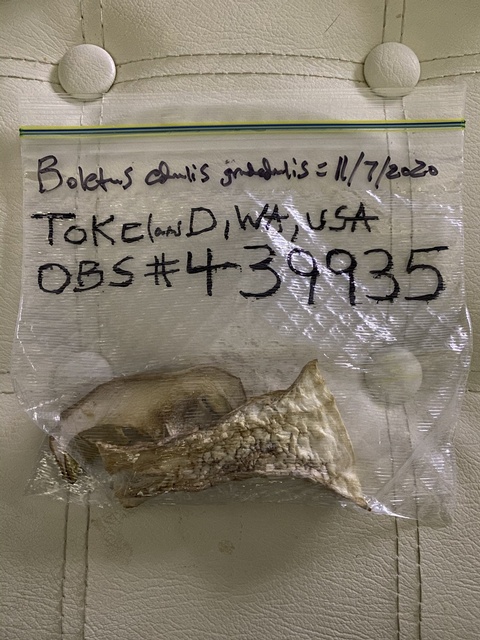 Boletus edulis grandedulis = 11/7/2020
TOKELanD, WA, USA
OBS #439935